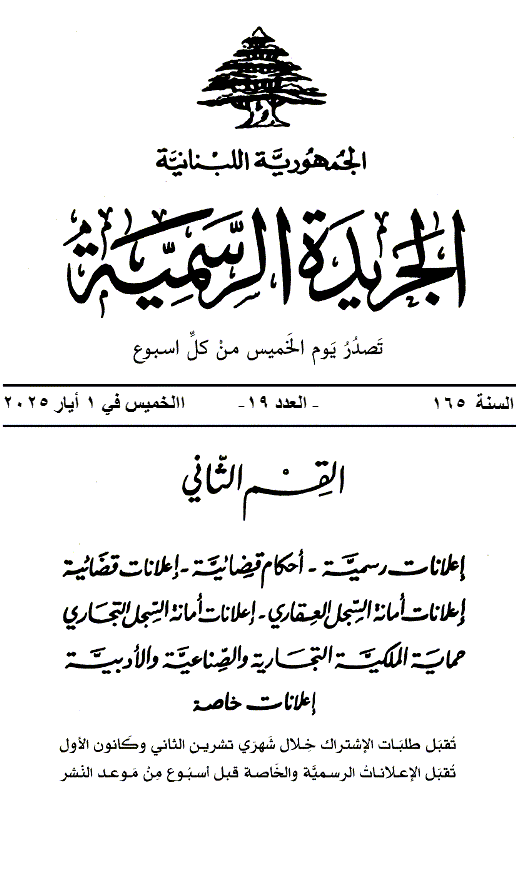 الجمهوريَّة اللبنانيَّة
الجريدة الرسميَّة
تَصدُرُ يَوم الخَميس منْ كلِّ اسبوع
السنة ١٦٥ - العدد ١٩- االخميس في ١ أيار ٢٠٢٥
القِسْم الثّاني
إعلانات رسميَّة - أحكام قضائيَّة - إعلانات قضائية
إعلانات أمانة السِّجل العقاري - إعلانات أمانة السِّجل التجاري
حماية الملكيَّة التجارية والصِّناعيَّة والأدبيَّة
إعلانات خاصة
تُقبَل طلبَات الإشتراك خِلال شَهرَي تشرين الثاني وكَانون الأول
تُقبَل الإعلاناتُ الرسميَّة والخَاصة قبل أسبُوع مِنْ مَوعد النَشر